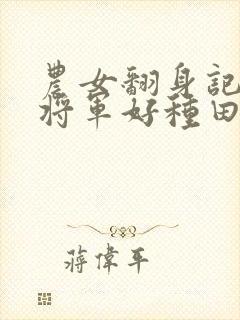 農女翻身記
將軍好種田
蔣偉平